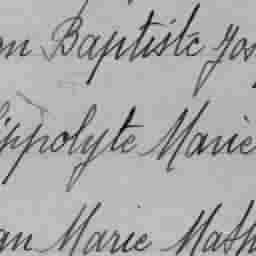 on Baptiste Jos
ippolyte Marie
an Marie Math